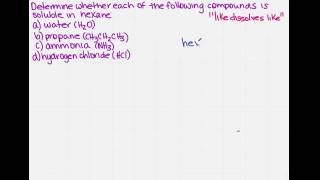 Determine whether each of the following compounds is
soluble in hexane "like dissolves like"
a) water (H₂O)
b) propane (CH₃CH₂CH₃)
c) ammonia (NH₃)
d) hydrogen chloride (HCl)
hex